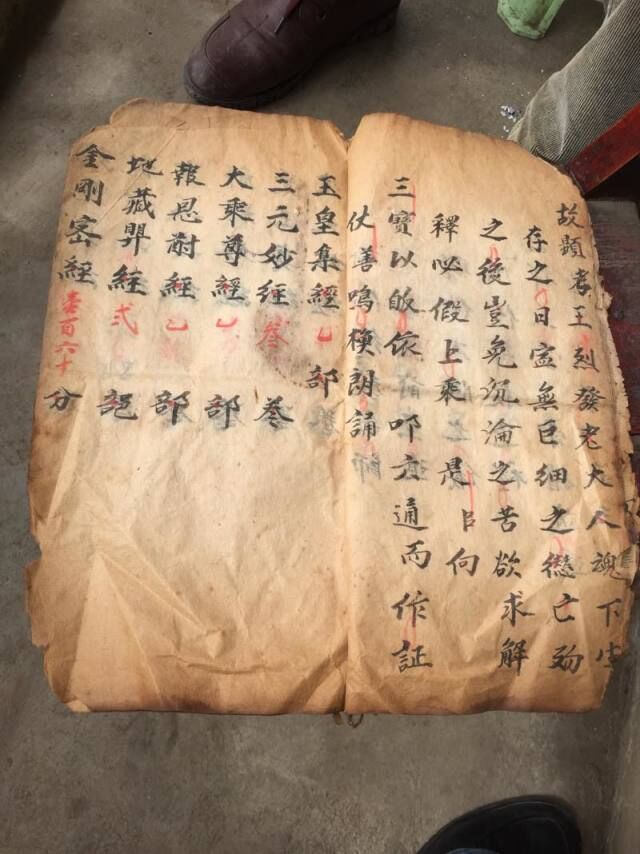 故顯考王烈發老大人魂下生
存之日寍無巨細之愆亡殁
之後豈免沉淪之苦欲求解
釋必假上乘是㠯向
三寶以皈依叩通而作証
仗善鳴朗誦
玉皇集經乙部
三元妙經叁卷
大乘尊經乙部
報恩耐經乙部
地藏經弍
金剛密經壹百六十分